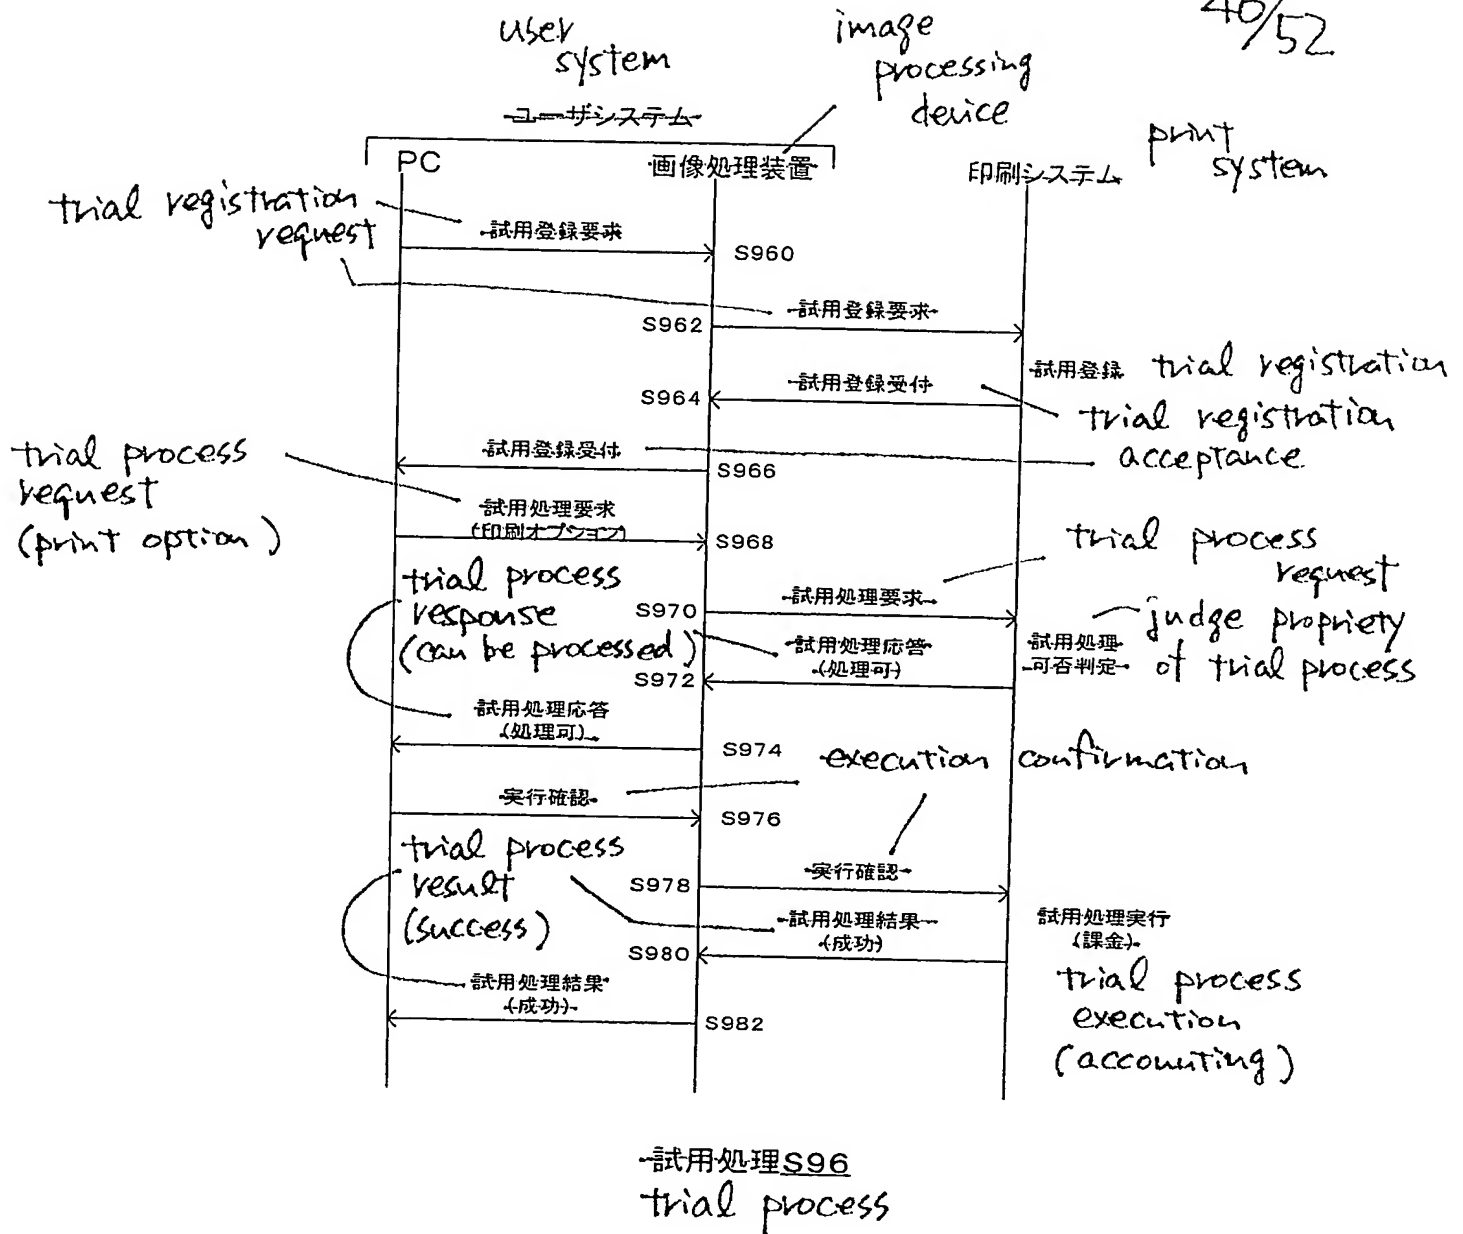 40/52
user
system
image
processing
device
ユーザシステム
print
system
PC
画像処理装置
印刷システム
trial registration
request
試用登録要求
S960
試用登録要求
S962
試用登録
trial registration
試用登録受付
S964
trial registration
acceptance
試用登録受付
S966
trial process
request
(print option)
試用処理要求
(印刷オプション)
S968
trial process
request
試用処理要求
S970
trial process
response
(can be processed)
judge propriety
of trial process
試用処理
可否判定
試用処理応答
(処理可)
S972
試用処理応答
(処理可)
S974
execution confirmation
実行確認
S976
実行確認
S978
trial process
result
(success)
試用処理結果
(成功)
S980
試用処理実行
(課金)
trial process
execution
(accounting)
試用処理結果
(成功)
S982
試用処理S96
trial process